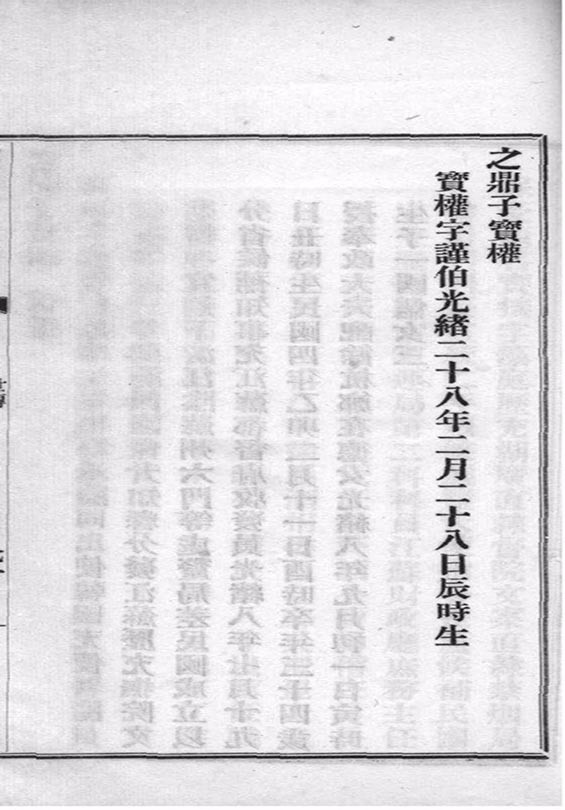 之鼎子寶權
寶權字謹伯光緒二十八年二月二十八日辰時生